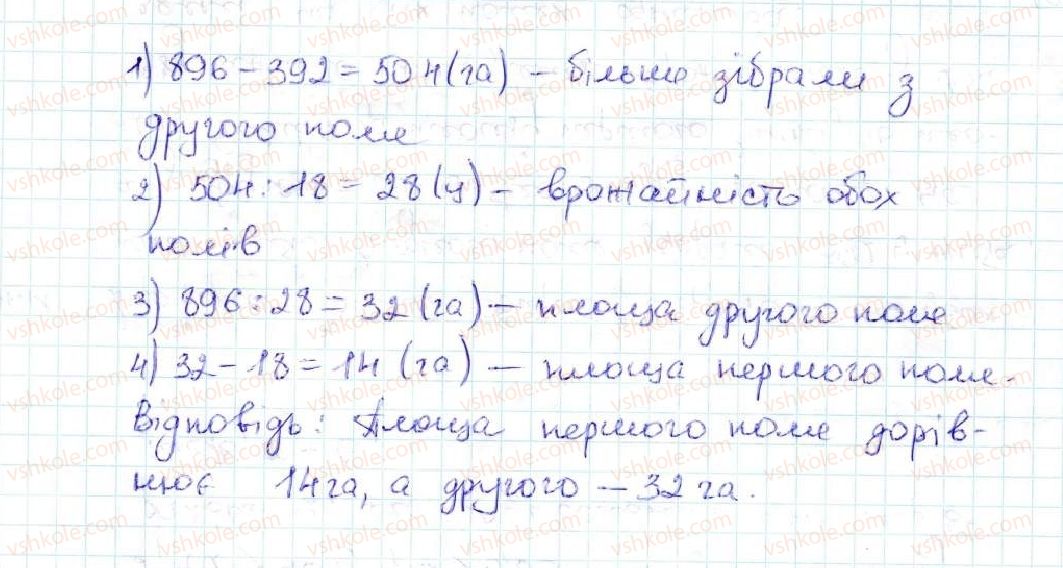 1) 896 - 392 = 504 (га) - більше зібрали з
другого поля
2) 504 : 18 = 28 (ц) - врожайність обох
полів
3) 896 : 28 = 32 (га) - площа другого поля
4) 32 - 18 = 14 (га) - площа першого поля.
Відповідь: площа першого поля дорів-
нює 14 га, а другого - 32 га.